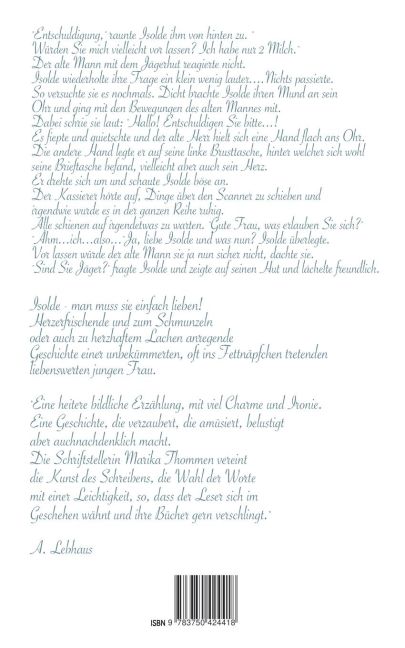 "Entschuldigung," raunte Isolde ihm von hinten zu. "
Würden Sie mich vielleicht vor lassen? Ich habe nur 2 Milch."
Der alte Mann mit dem Jägerhut reagierte nicht.
Isolde wiederholte ihre Frage ein klein wenig lauter....Nichts passierte.
So versuchte sie es nochmals. Dicht brachte Isolde ihren Mund an sein
Ohr und ging mit den Bewegungen des alten Mannes mit.
Dabei schrie sie laut: "Hallo! Entschuldigen Sie bitte...!
Es fiepte und quietschte und der alte Herr hielt sich eine Hand flach ans Ohr.
Die andere Hand legte er auf seine linke Brusttasche, hinter welcher sich wohl
seine Brieftasche befand, vielleicht aber auch sein Herz.
Er drehte sich um und schaute Isolde böse an.
Der Kassierer hörte auf, Dinge über den Scanner zu schieben und
irgendwie wurde es in der ganzen Reihe ruhig.
Alle schienen auf irgendetwas zu warten. "Gute Frau, was erlauben Sie sich?"
"Ähm...ich...also..." Ja, liebe Isolde und was nun? Isolde überlegte.
Vor lassen würde der alte Mann sie ja nun sicher nicht, dachte sie.
"Sind Sie Jäger?" fragte Isolde und zeigte auf seinen Hut und lächelte freundlich.
Isolde - man muss sie einfach lieben!
Herzerfrischende und zum Schmunzeln
oder auch zu herzhaftem Lachen anregende
Geschichte einer unbekümmerten, oft ins Fettnäpfchen tretenden
liebenswerten jungen Frau.
"Eine heitere bildliche Erzählung, mit viel Charme und Ironie.
Eine Geschichte, die verzaubert, die amüsiert, belustigt
aber auchnachdenklich macht.
Die Schriftstellerin Marika Thommen vereint
die Kunst des Schreibens, die Wahl der Worte
mit einer Leichtigkeit, so, dass der Leser sich im
Geschehen wähnt und ihre Bücher gern verschlingt."
A. Lebhaus
ISBN 9 783750 424418